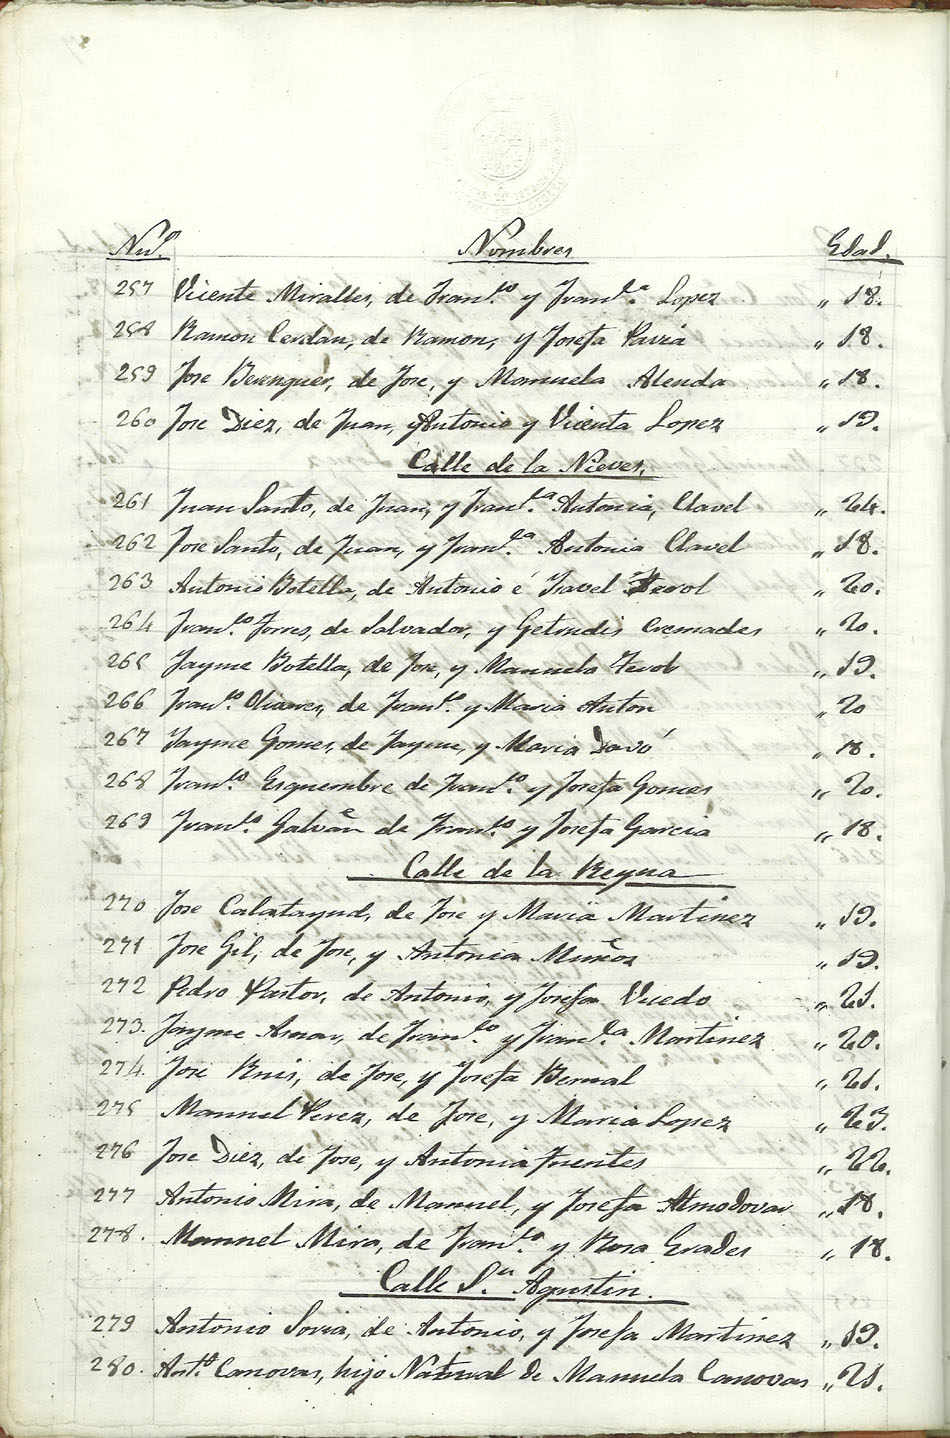 Nu.º Nombres Edad.
257 Vicente Miralles, de Fran.co y Fran.ca Lopez „ 18.
258 Ramon Cerdan, de Ramon, y Josefa Pavia „ 18.
259 Jose Berenguer, de Jose, y Manuela Alenda „ 18.
260 Jose Diez, de Juan, y Antonio y Vicenta Lopez „ 19.
Calle de la Nieves,
261 Juan Santo, de Juan, y Fran.ca Antonia, Clavel „ 24.
262 Jose Santo, de Juan, y Fran.ca Antonia Clavel „ 18.
263 Antonio Botella, de Antonio é Isavel Ferol „ 20.
264 Fran.co Torres, de Salvador, y Getrudis Cremades „ 20.
265 Jayme Botella, de Jose, y Manuela Ferol „ 19.
266 Fran.co Olivares, de Fran.co y Maria Anton „ 20
267 Jayme Gomes, de Jayme, y Maria Davó „ 18.
268 Fran.co Esquembre de Fran.co y Josefa Gomes „ 20.
269 Fran.co Galvañ de Fran.co y Josefa Garcia „ 18.
Calle de la Reyna
270 Jose Calatayud, de Jose y Maria Martinez „ 19.
271 Jose Gil, de Jose, y Antonia Muñoz „ 19.
272 Pedro Pastor, de Antonio, y Josefa Vicedo „ 21.
273. Jayme Aznar, de Fran.co y Fran.ca Martinez „ 20.
274. Jose Ruis, de Jose, y Josefa Bernal „ 21.
275 Manuel Perez, de Jose, y Maria Lopez „ 23.
276 Jose Diez, de Jose, y Antonia Fuentes „ 22.
277 Antonio Mira, de Manuel, y Josefa Almodovar „ 18.
278. Manuel Mira, de Fran.co y Rosa Grades „ 18.
Calle S.n Agustin.
279 Antonio Soria, de Antonio, y Josefa Martinez „ 19.
280. Ant.º Canovas, hijo Natural de Manuela Canovas „ 21.